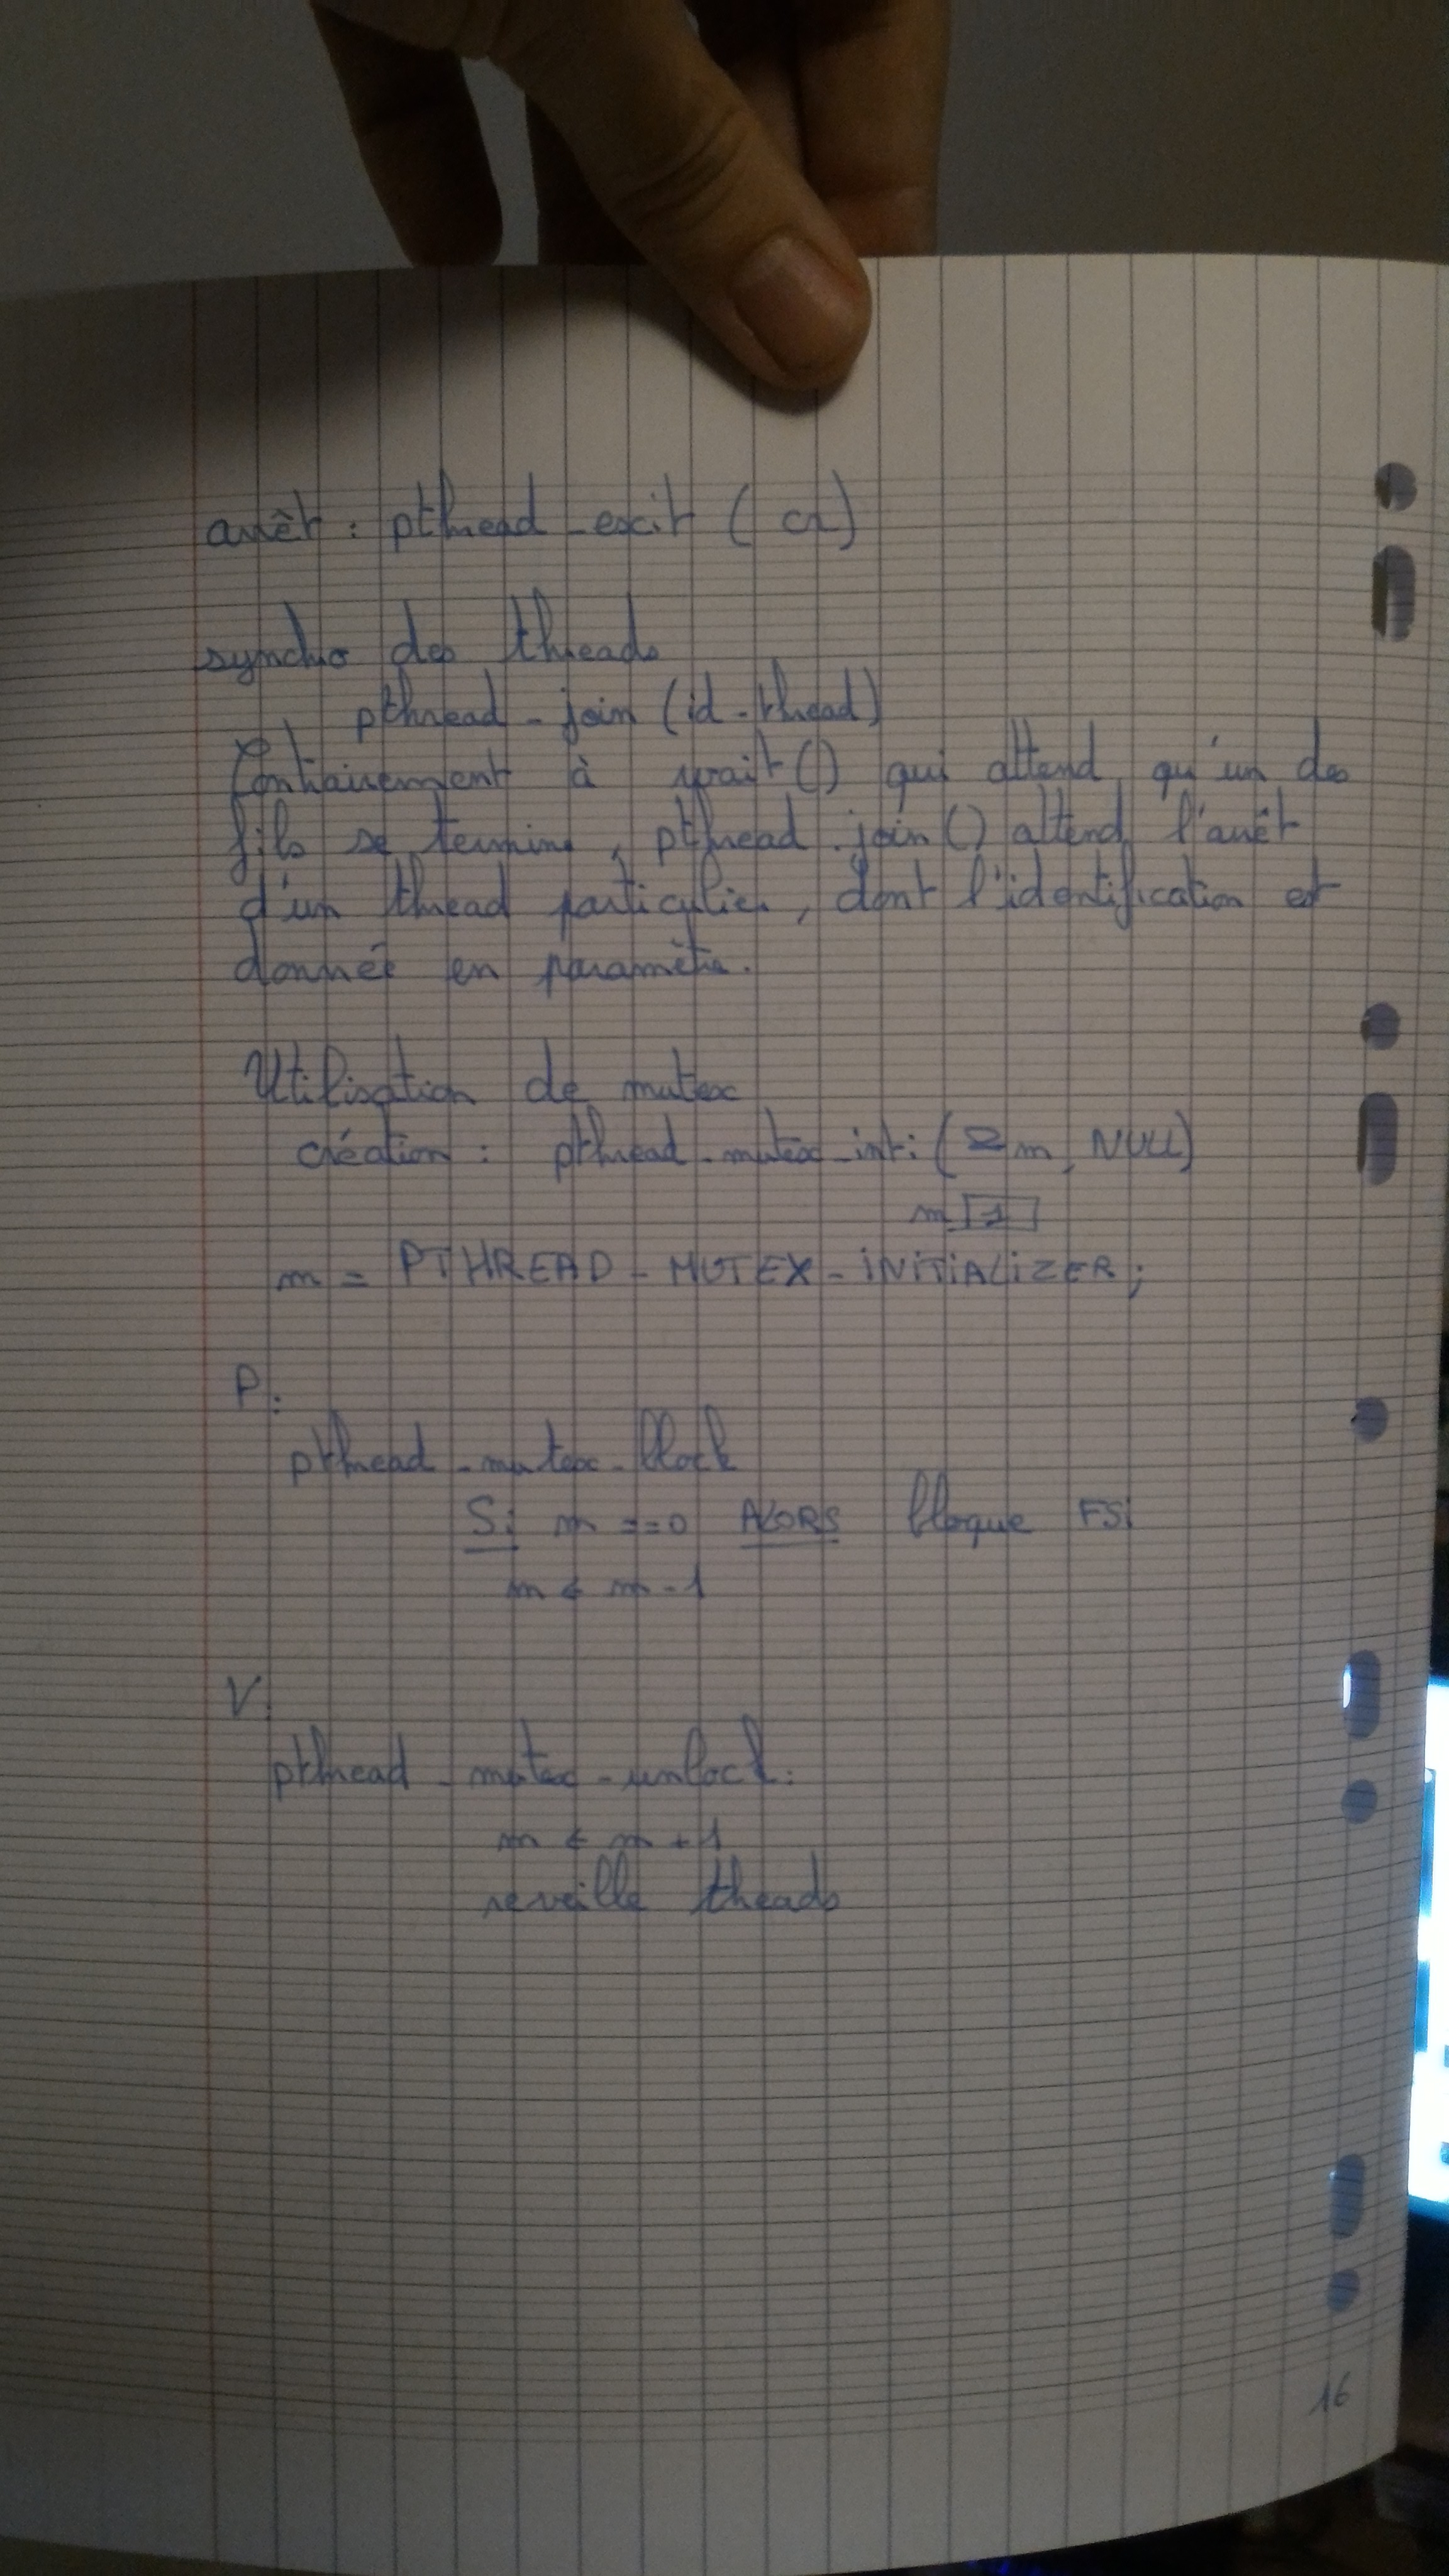 arrêt : pthread_exit ( cr )
synchro des threads
pthread_join (id_thread)
Contrairement à wait() qui attend qu'un des
fils se termine, pthread_join() attend l'arrêt
d'un thread particulier, dont l'identification est
donnée en paramètre.
Utilisation de mutex
création : pthread_mutex_inti (&m, NULL)
m 1
m = PTHREAD_MUTEX_INITIALIZER;
P:
pthread_mutex_block
Si m ==0 ALORS bloque FSi
m ← m - 1
V:
pthread_mutex_unlock:
m ← m + 1
reveille threads
16